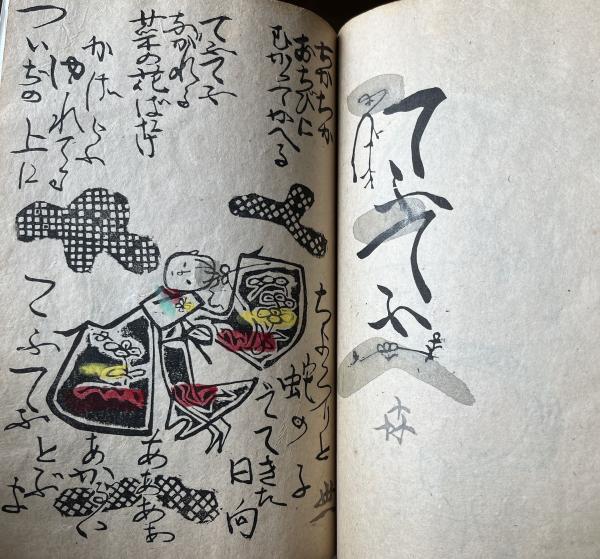 てふてふ
森
ちかちか
むかつてかへる
てふてふ
ながれる
菜の花ばたけ
かげろふ
ゆれてる
ついぢの上に
ちよろりと
蛇の子
でてきた
日向
ああああ
あかるい
てふてふとぶよ